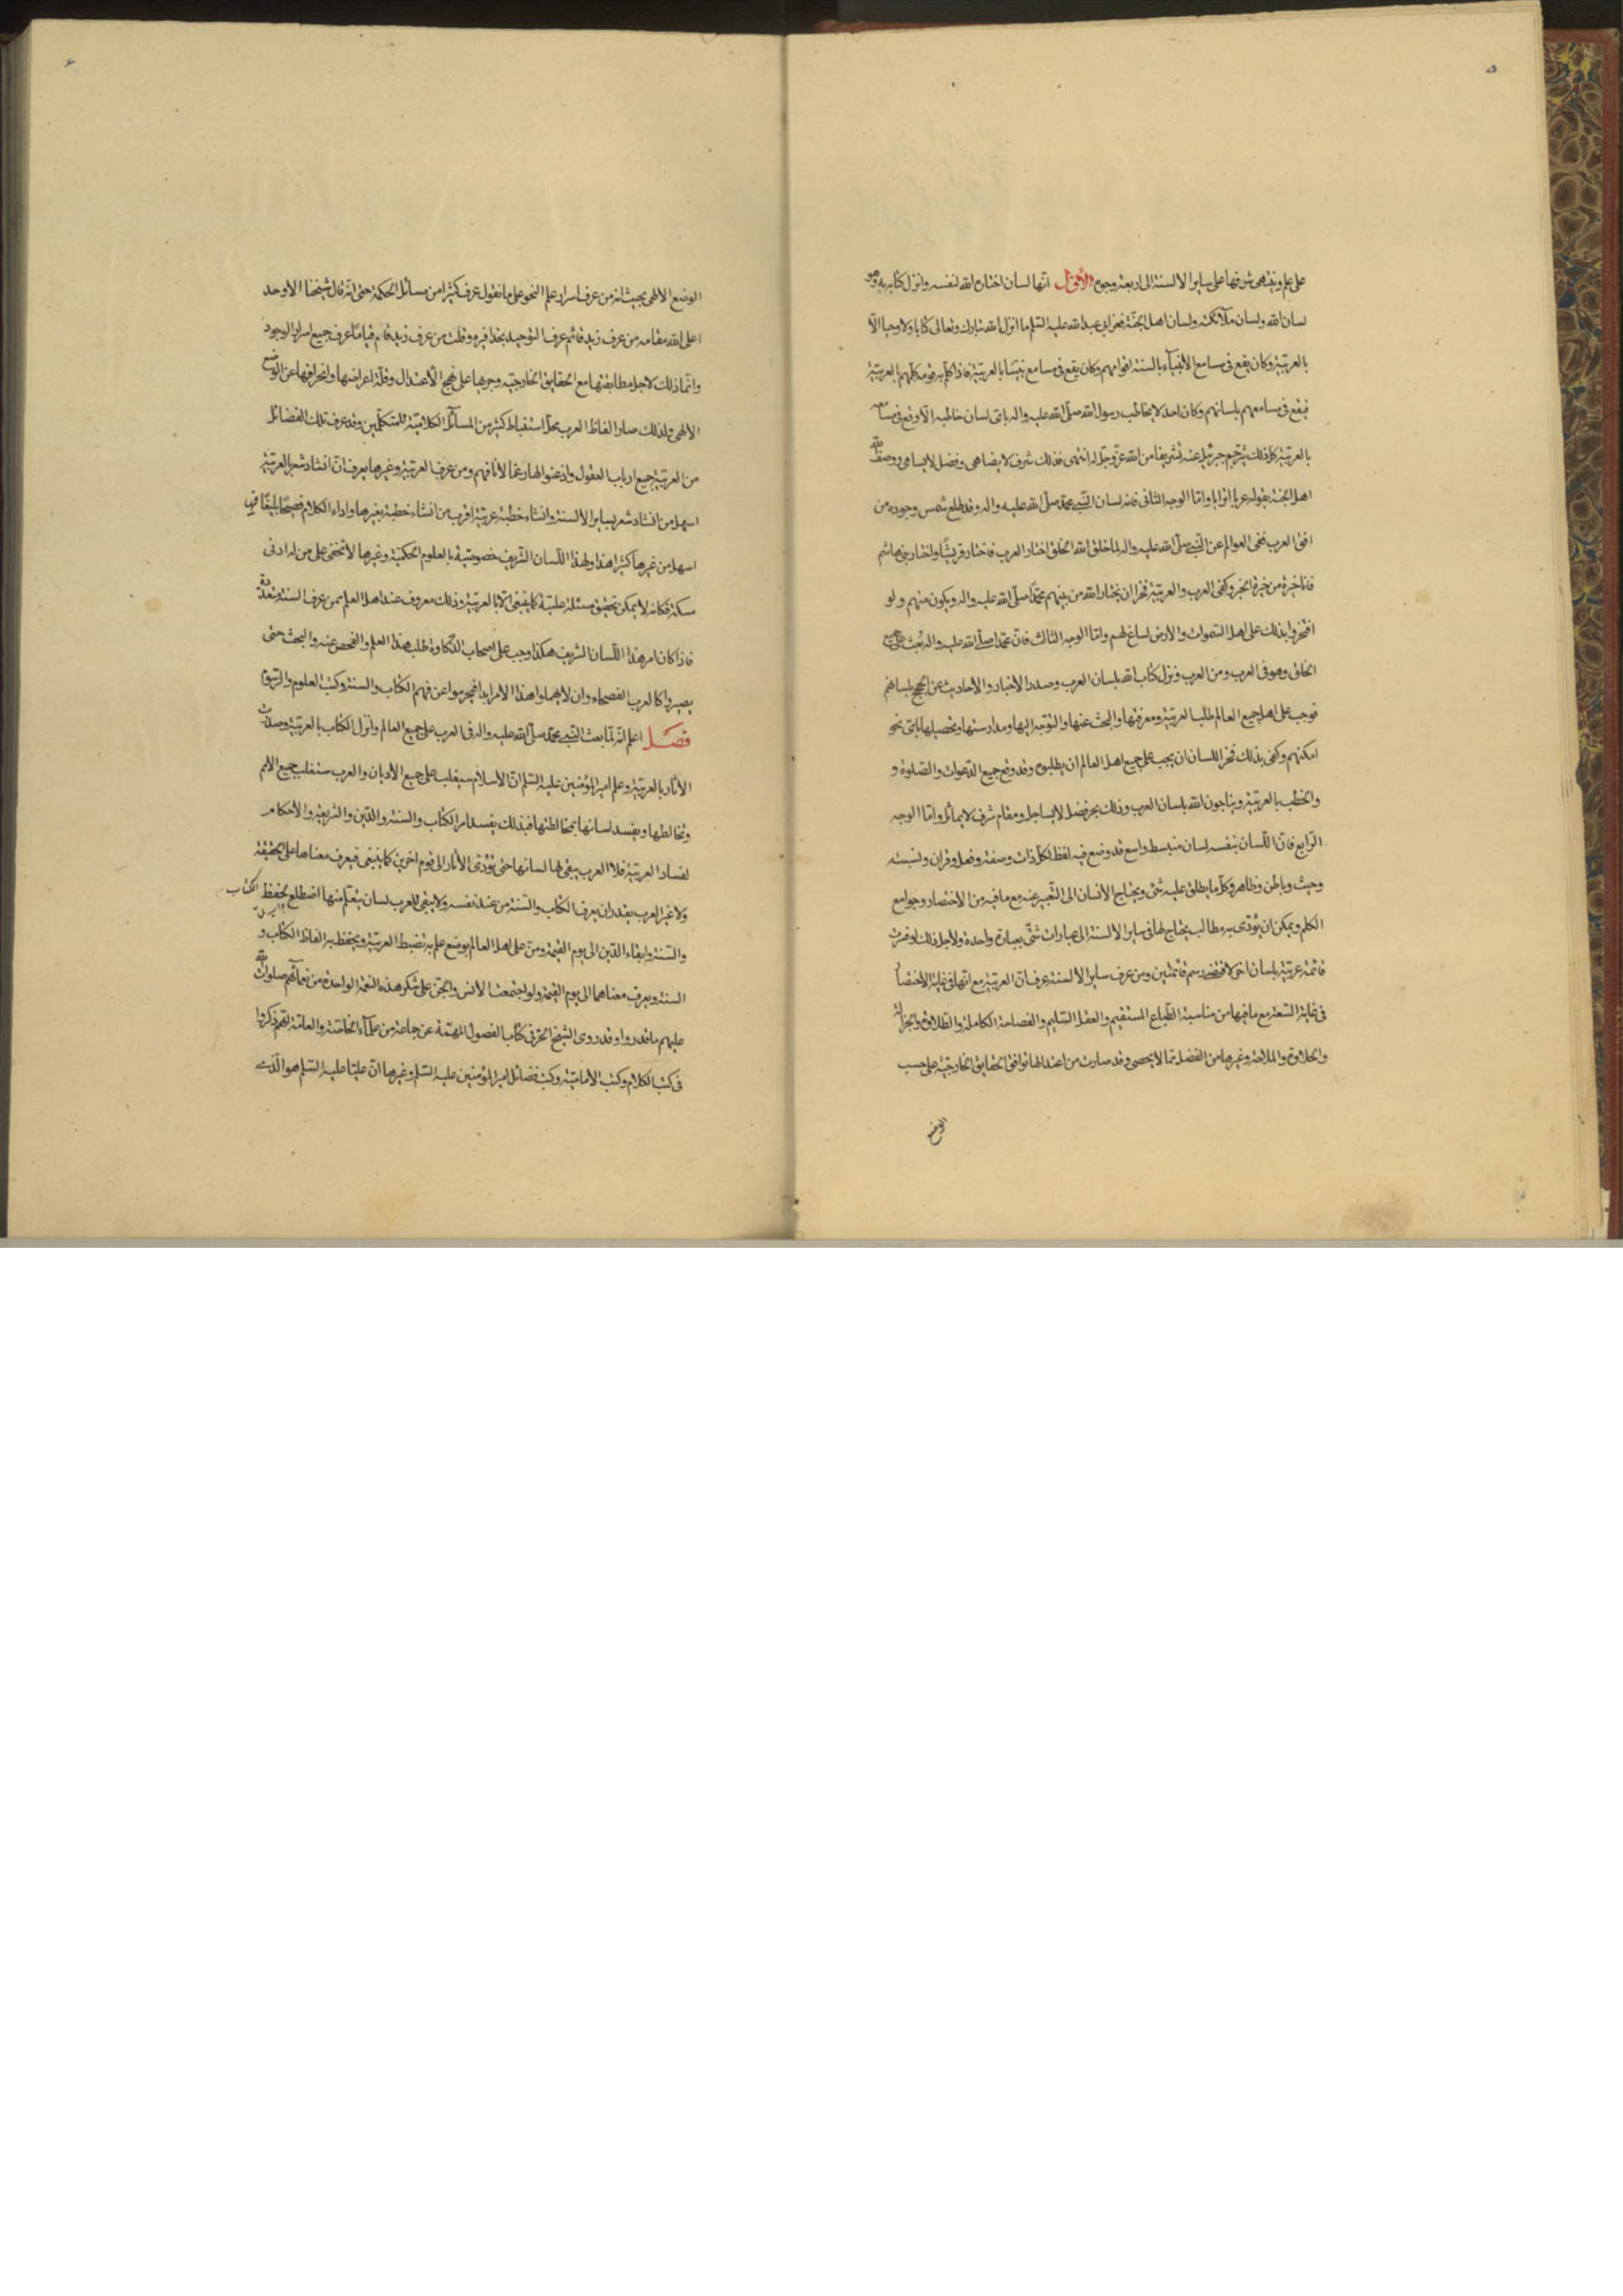 ٥
على علم وينتهى شرفها على ساير الالسنة الى اربعة وجوه الأول انها لسان اختاره الله لنفسه وانزل كتابه به وهو
لسان الله ولسان ملآئكته ولسان اهل الجنّة فعن ابى عبد الله عليه السّلم ما انزل الله تبارك وتعالى كتابا ولا وحيا الّا
بالعربيّة وكان يقع فى مسامع الأنبيآء بالسنة اقوامهم وكان يقع فى مسامع نبيّنا بالعربيّة فاذا كلّم به قومه كلّمهم بالعربيّة
فيقع فى مسامعهم بلسانهم وكان احد لا يخاطب رسول الله صلّى الله عليه واله باىّ لسان خاطبه الّا وقع فى مسامعه
بالعربيّة كلّ ذلك يترجم جبرئيل عنه تشريفا من الله عزّ وجلّ له انتهى فذلك شرف لا يضاهى وفضل لا يسامى ووصف الله
اهل الجنة بقوله عربا اترابا وامّا الوجه الثانى فانه لسان النّبى محمّد صلّى الله عليه واله وقد طلع شمس وجوده من
افق العرب ففى العوالم عن النّبى صلّى الله عليه واله لما خلق الله الخلق اختار العرب فاختار قريشًا واختار بنى هاشم
فانا خيرة من خيرة الخبر وكفى العرب والعربيّة فخرا ان يختار الله من بينهم محمّدًا صلّى الله عليه واله ويكون منهم ولو
افتخروا بذلك على اهل السّموات والأرض لساغ لهم وامّا الوجه الثالث فانّ محمّدا صلّى الله عليه واله بُعث على جميع
الخلق وهو فى العرب ومن العرب ونزل كتاب الله بلسان العرب وصدر الأخبار والأحاديث عن الحجج بلسانهم
فوجب على اهل جميع العالم طلب العربيّة ومعرفتها والبحث عنها والتوجّه اليها ومدارستها وتحصيلها باىّ نحو
امكنهم وكفى بذلك فخر اللسان ان يجب على جميع اهل العالم ان يطلبوه وقد وقع جميع الدّعوات والصّلوة و
والخطب بالعربيّة ويناجون الله بلسان العرب وذلك بحر فضل لا يساجل ومقام شرف لا يماثل وامّا الوجه
الرّابع فانّ اللّسان بنفسه لسان منبسط واسع قد وضع فيه لفظ لكلّ ذات وصفة وفعل وقران ونسبت
وحيث وباطن وظاهر وكلّ ما يطلق عليه شئ ويحتاج الأنسان الى التّعبير عنه مع ما فيه من الأختصار وجوامع
الكلم ويمكن ان يؤدّى به مطالب يحتاج لها فى ساير الالسنة الى عبارات شتّى بعبارة واحدة ولأجل ذلك لو فسّرت
قائمة عربيّة بلسان اخر لاقتضى رسم قائمتين ومن عرف ساير الالسنة عرف انّ العربيّة مع انها فى غاية الأختصار
فى غاية السّعة مع ما فيها من مناسبة الطّباع المستقيم والعقل السّليم والفصاحة الكاملة والطّلاوة والجزالة
والحلاوة والملاحة وغيرها من الفضل ممّا لا يحصى وقد صارت من اعتدالها توافق الحقايق الخارجيّة على حسب
الوضع
٦
الوضع الألهى بحيث انّه من عرف اسرار علم النحو على ما نقول عرف كثيرًا من مسائل الحكمة حتى انّه قال شيخنا الاوحد
اعلى الله مقامه من عرف زيد قائم عرف التوحيد بحذافيره وقلت من عرف زيد قائم قيامًا عرف جميع اسرار الوجود
وانّما ذلك لاجل مطابقتها مع الحقايق الخارجيّه وجريها على نهج الأعتدال وقلّة اعراضها وانحرافها عن الوضع
الالهى ولذلك صار الفاظ العرب محلّ استنباط كثير من المسآئل الكلاميّة للمتكلّمين وقد عرف تلك الفضائل
من العربيّة جميع ارباب العقول واذعنوا لها رغما لأنافهم ومن عرف العربيّة وغيرها يعرف انّ انشاد شعر بالعربيّة
اسهل من انشاد شعر بساير الألسنة وانشاء خطبة عربيّة اقرب من انشاء خطبة بغيرها واداء الكلام فصيحًا بليغًا فى
اسهل من غيرها كثيرا هذا ولهذا اللّسان الشّريف خصوصيّة بالعلوم الحكمية وغيرها لا تخفى على من له ادنى
مسكة فكانه لا يمكن تحقيق مسئلة علميّة كما ينبغى الّا بالعربيّة وذلك معروف عند اهل العلم ممن عرف السنة متعدّدة
فاذا كان امر هذا اللّسان الشريف هكذا وجب على اصحاب الذّكاوة طلب هذا العلم والفحص عنه والبحث حتى
يصيروا كالعرب الفصحاء وان لا يهملوا هذا الأمر ابدا فيحرموا عن فهم الكتاب والسنة وكتب العلوم والرّسوم
فصل اعلم انّه لمّا بعث النّبى محمّد صلّى الله عليه واله فى العرب على جميع العالم وانزل الكتاب بالعربيّة وصدرت
الأثار بالعربيّة وعلم امير المؤمنين عليه السّلم انّ الأسلام سيغلب على جميع الأديان والعرب ستغلب جميع الامم
وتخالطها ويفسد لسانها بمخالطتها فبذلك يفسد امر الكتاب والسنة والدّين والشريعة والأحكام
لفساد العربيّة فلا العرب يبقى لها لسانها حتى تؤدّى الأثار الى قوم اخرين كما ينبغى فيعرف معناها على الحقيقة
ولا غير العرب يقدر ان يعرف الكتاب والسّنة من عند نفسه ولا يبقى للعرب لسان يتعلّم منها اضطلع بحفظ الكتاب
والسّنة وابقاء الدّين الى يوم القيمة ومنّ على اهل العالم بوضع علم به تضبط العربيّة ويحفظ به الفاظ الكتاب و
السنة ويعرف معناهما الى يوم القيمة ولو اجتمعت الأنس والجنّ على شكر هذه النعمة الواحدة من نعمآئهم صلوات الله
عليهم ما قدروا وقد روى الشيخ الحرّ فى كتاب الفصول المهمّة عن جماعة من علمآء الخاصّة والعامّة انهم ذكروا
فى كتب الكلام وكتب الأماميّة وكتب فضائل امير المؤمنين عليه السّلم وغيرها انّ عليّا عليه السّلم هو الّذى